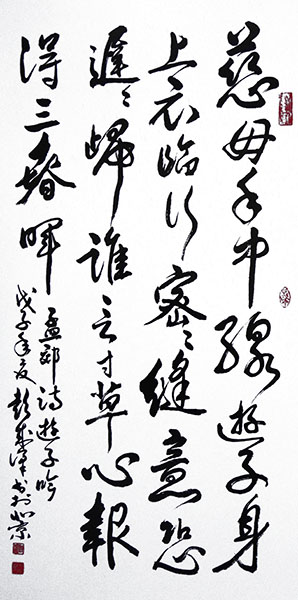 慈母手中線遊子身
上衣臨行密〻縫意恐
遲〻歸誰言寸草心報
得三春暉 孟郊詩遊子吟
戊子年夏彭 書於北京